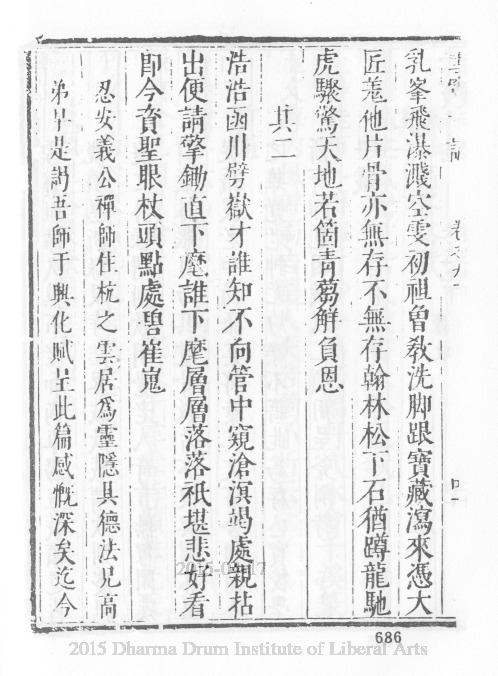 乳峯飛瀑濺空雯初祖曾教洗脚跟寶藏瀉來憑大
匠羗他片骨亦無存不無存翰林松下石猶蹲龍馳
虎驟驚天地若箇青蒭解負恩
其二
浩浩函川劈嶽才誰知不向管中窺滄溟竭處親拈
出便請擎鋤直下麾誰下麾層層落落祇堪悲好看
卽今資聖眼杖頭點處碧崔嵬
忍安義公禪師住杭之雲居爲靈隱具德法兄高
弟早是謁吾師于興化賦呈此篇感慨深矣迄今
686
2015 Dharma Drum Institute of Liberal Arts